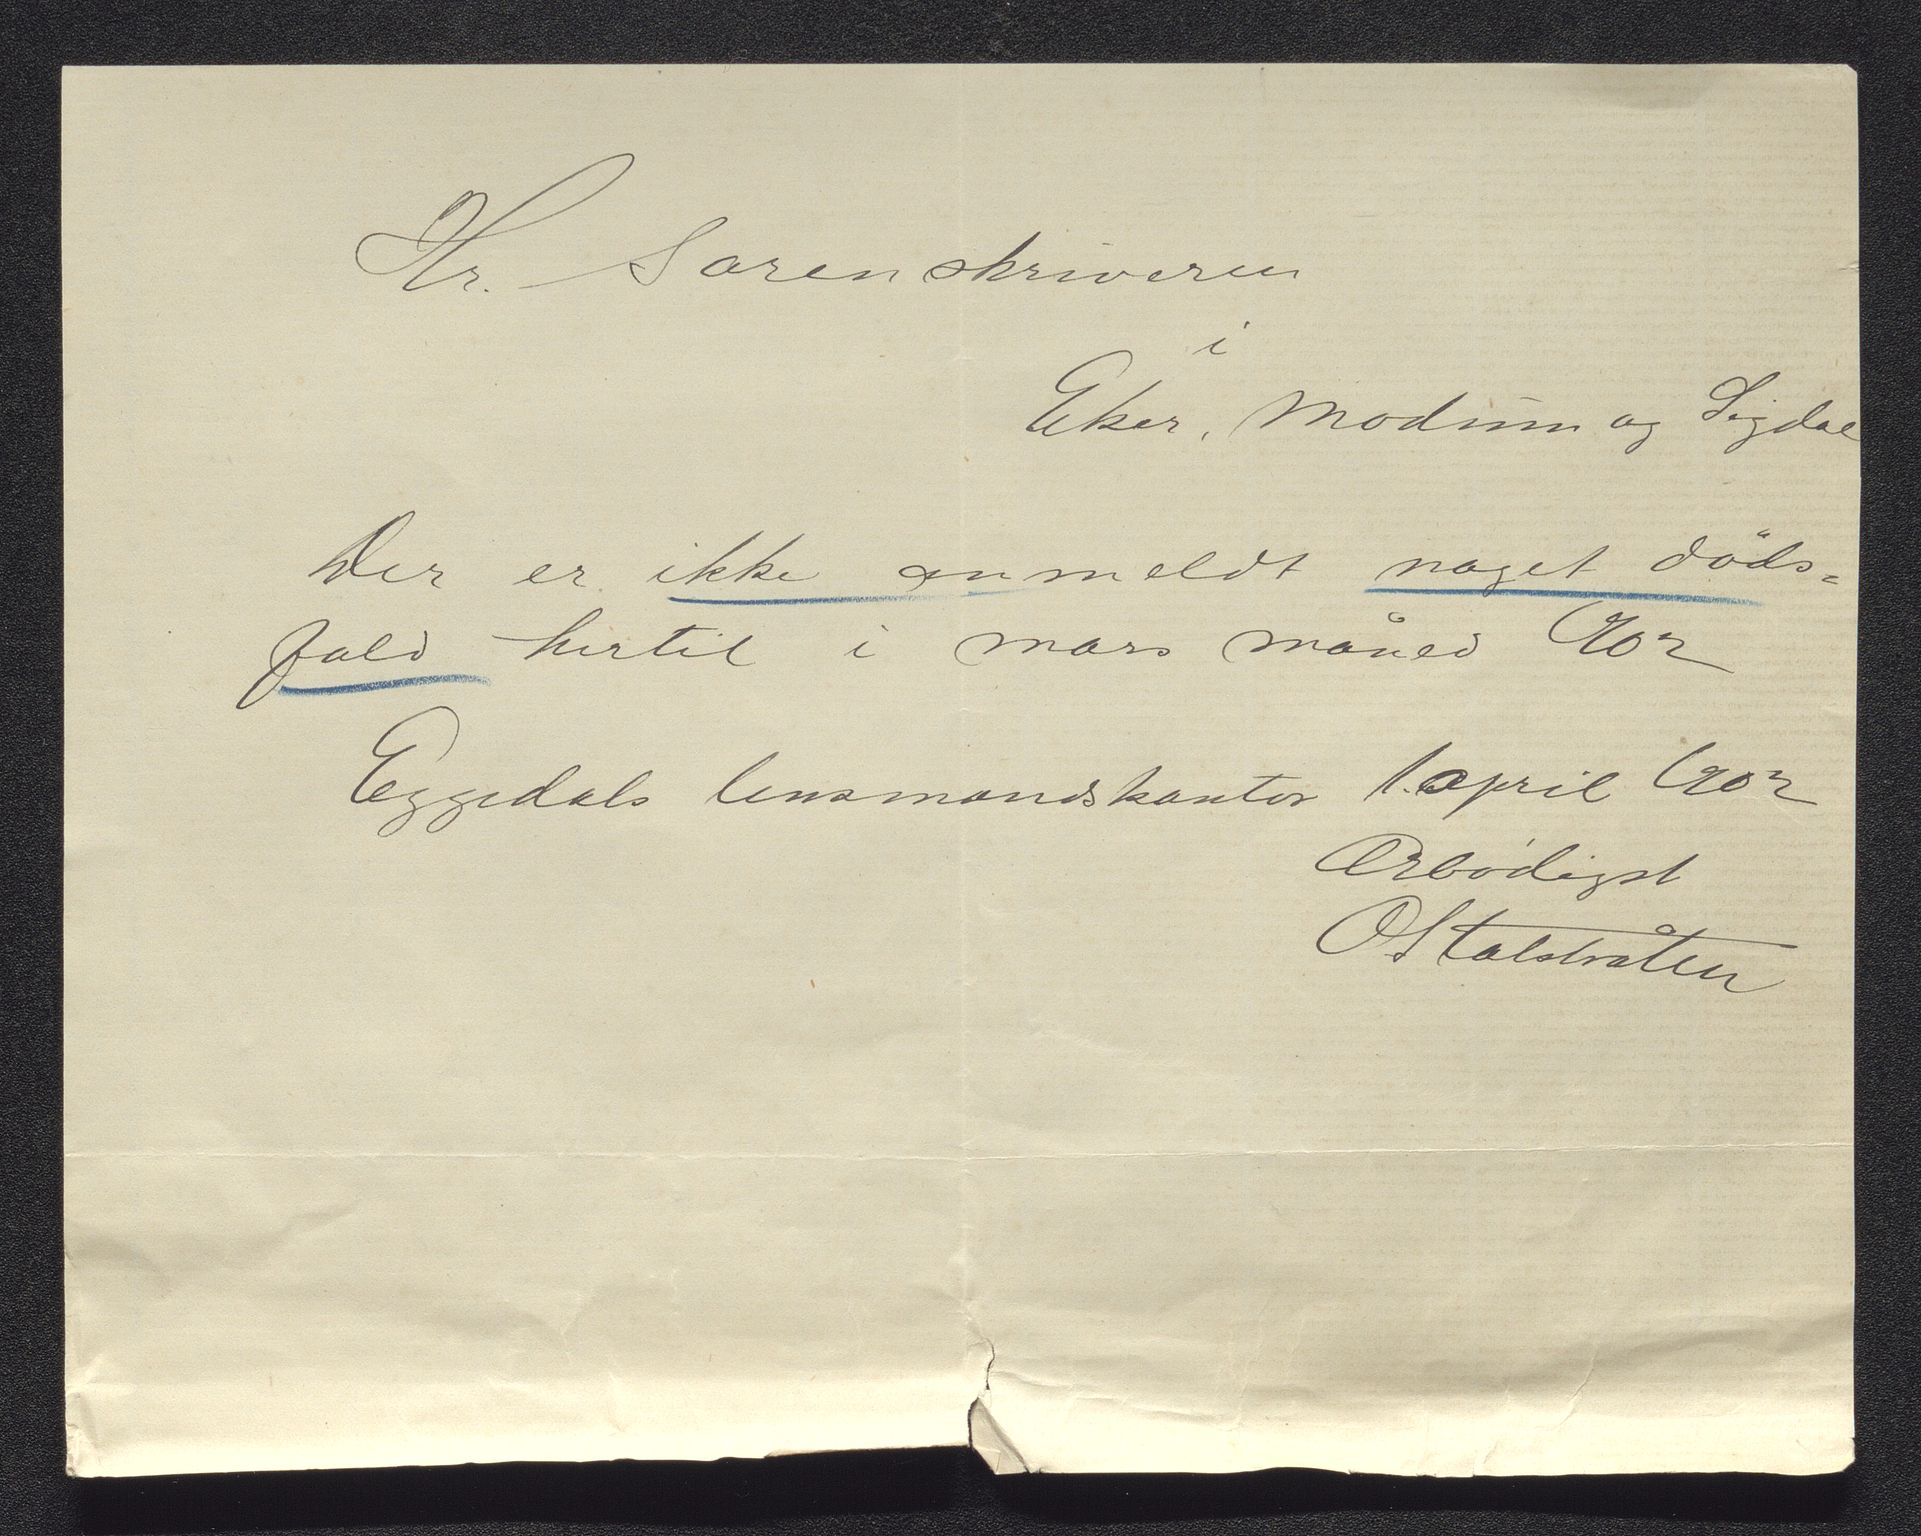 Hr. Sorenskriveren
i
Eker, Modum og Sigdal
Der er ikke anmeldt noget döds=
fald hertil i mars måned 1902
Eggedals lensmandskontor 1. april 1902
Ærbödigst
O Stalsbråten